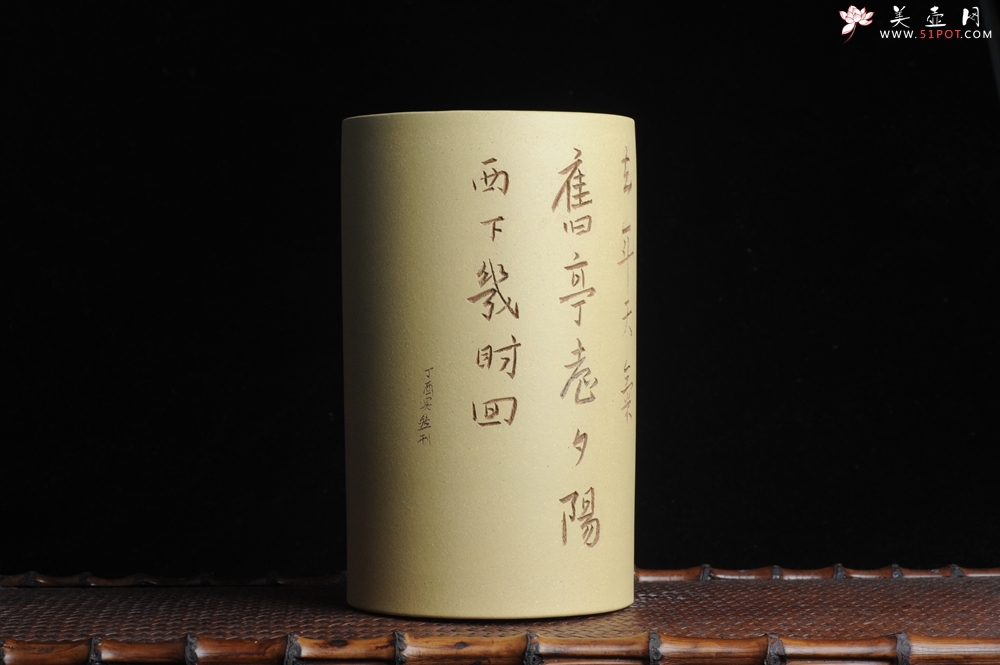 美壶网
WWW.51POT.COM
去年天氣
舊亭臺夕陽
西下幾時回
丁酉 刊